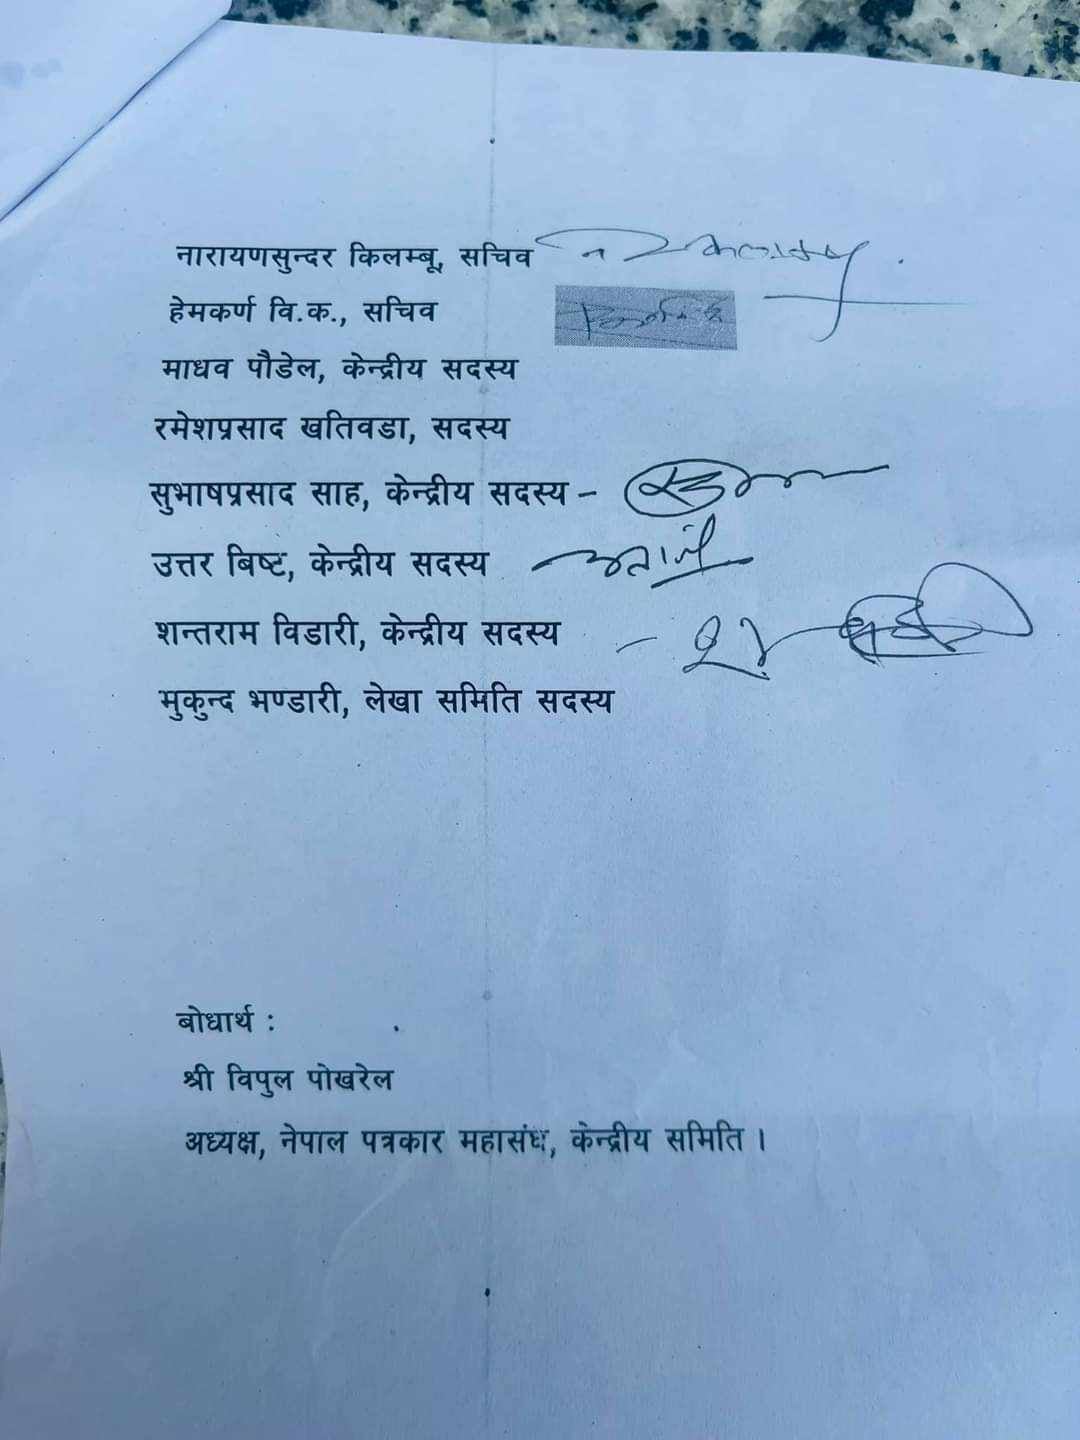 नारायणसुन्दर किलम्बू, सचिव
हेमकर्ण वि.क., सचिव
माधव पौडेल, केन्द्रीय सदस्य
रमेशप्रसाद खतिवडा, सदस्य
सुभाषप्रसाद साह, केन्द्रीय सदस्य -
उत्तर बिष्ट, केन्द्रीय सदस्य
शन्तराम विडारी, केन्द्रीय सदस्य -
मुकुन्द भण्डारी, लेखा समिति सदस्य
बोधार्थ :
श्री विपुल पोखरेल
अध्यक्ष, नेपाल पत्रकार महासंघ, केन्द्रीय समिति ।